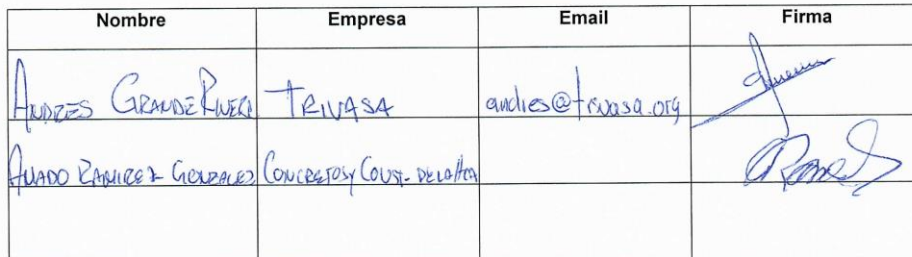 Nombre Empresa Email Firma
ANDRES GRANDE RIVERA TRIVASA andres@trivasa.org
AMADO RAMIREZ GONZALEZ CONCRETOS y CONST. DE LA